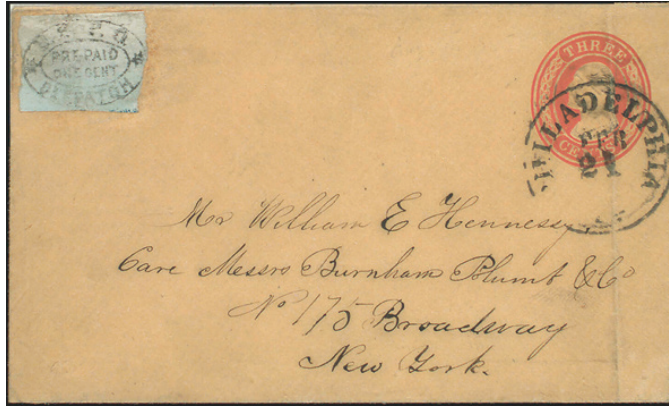 U.S.P.O.
PRE-PAID
ONE CENT
DESPATCH
THREE
CENTS
PHILADELPHIA
FEB
21
Mr William E Hennessy
Care Messrs Burnham Plumb & Co
No 175 Broadway
New York.